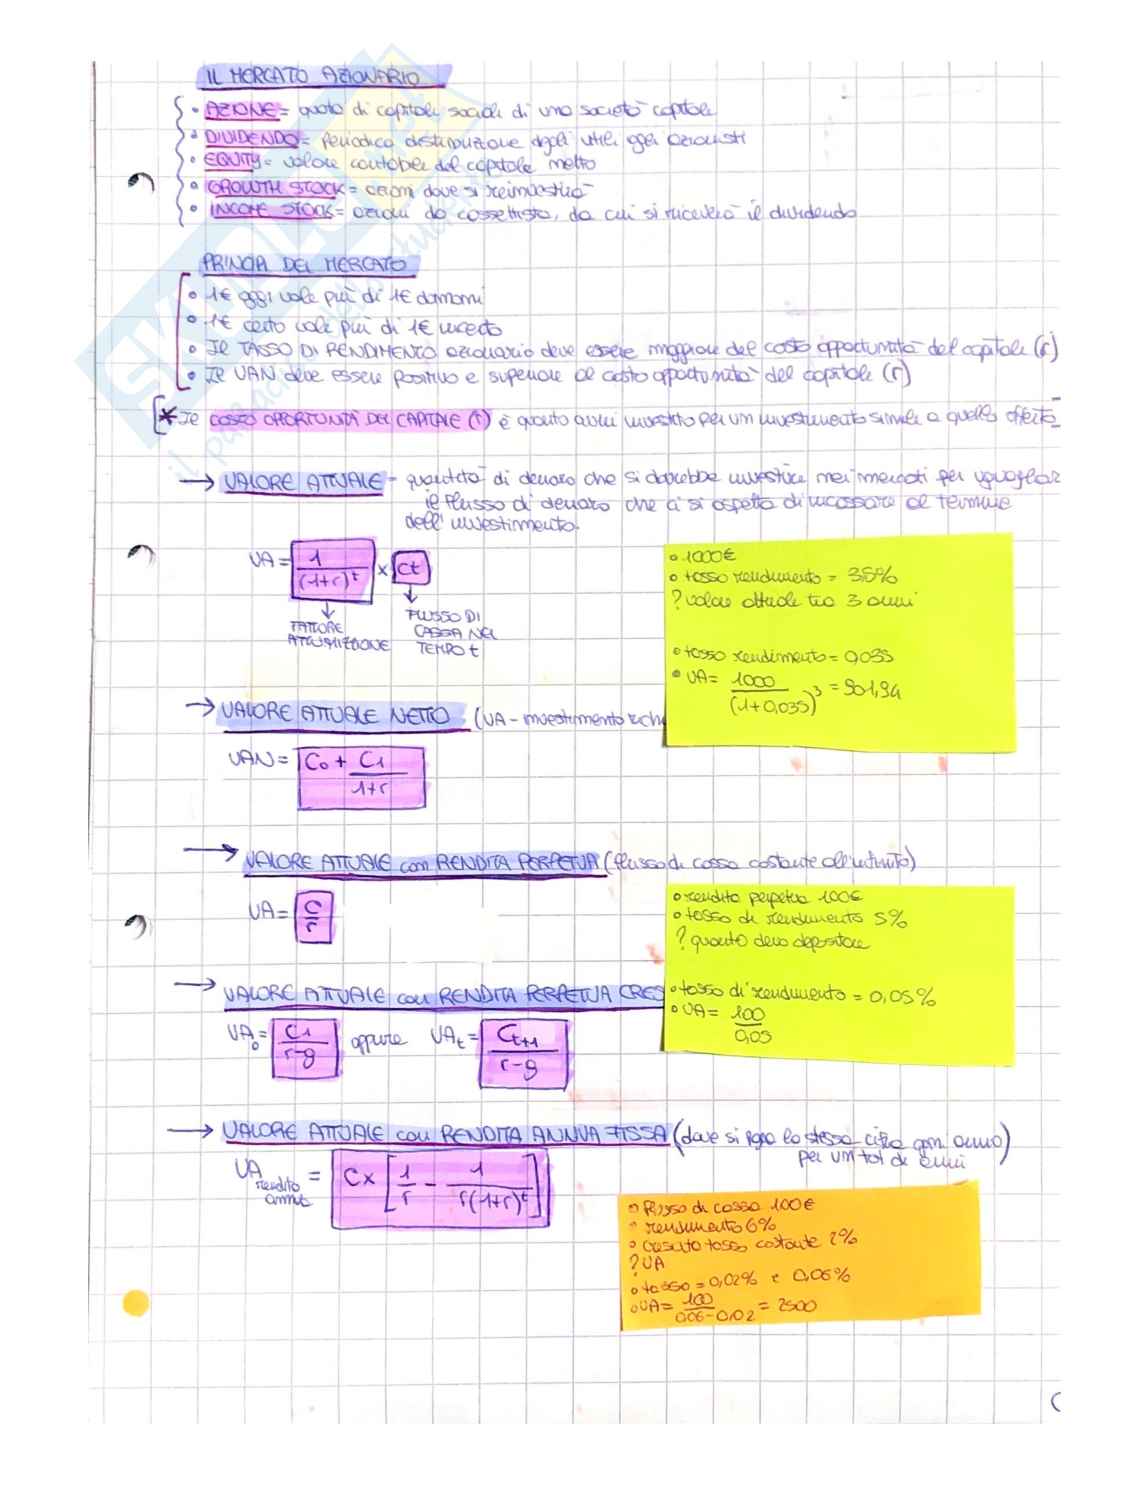 IL MERCATO AZIONARIO
• AZIONE = quota di capitale sociale di una società capitale
• DIVIDENDO = Periodica distribuzione degli utili agli azionisti
• EQUITY = valore contabile del capitale netto
• GROWTH STOCK = azioni dove si reinvestirà
• INCOME STOCK = azioni da cassettista, da cui si riceverà il dividendo
PRINCIPI DEL MERCATO
• 1€ oggi vale più di 1€ domani
• 1€ certo vale più di 1€ incerto
• Il TASSO DI RENDIMENTO azionario deve essere maggiore del costo opportunità del capitale (r)
• Il VAN deve essere positivo e superiore al costo opportunità del capitale (r)
* Il COSTO OPPORTUNITÀ DEL CAPITALE (r) è quanto avrei investito per un investimento simile a quello
→ VALORE ATTUALE - quantità di denaro che si dovrebbe investire nei mercati per
il flusso di denaro che ci si aspetta di incassare al termine
dell'investimento.
VA = 1 / (1+r)^t × Ct
FATTORE ATTUALIZZIONE
FLUSSO DI CASSA NEL TEMPO t
• 1000€
• tasso rendimento = 3,5%
? valore attuale tra 3 anni
• tasso rendimento = 0,035
• VA = 1000 / (1+0,035)^3 = 901,94
→ VALORE ATTUALE NETTO (VA - investimento
VAN = C0 + C1 / 1+r
→ VALORE ATTUALE con RENDITA PERPETUA (flusso di cassa costante all'infinito)
VA = C / r
• rendita perpetua 100€
• tasso di rendimento 5%
? quanto devo depositare
• tasso di rendimento = 0,05%
• VA = 100 / 0,05
→ VALORE ATTUALE con RENDITA PERPETUA CRES
VA0 = C1 / r-g oppure VAt = Ct+1 / r-g
→ VALORE ATTUALE con RENDITA ANNUA FISSA (dove si paga la stessa cifra ogni anno
per un tot di anni)
VA rendita annua = C x [1/r - 1 / r(1+r)^t]
• flusso di cassa 100€
• rendimento 6%
• crescita tasso costante 2%
? VA
• tasso = 0,02% e 0,06%
• VA = 100 / 0,06-0,02 = 2500